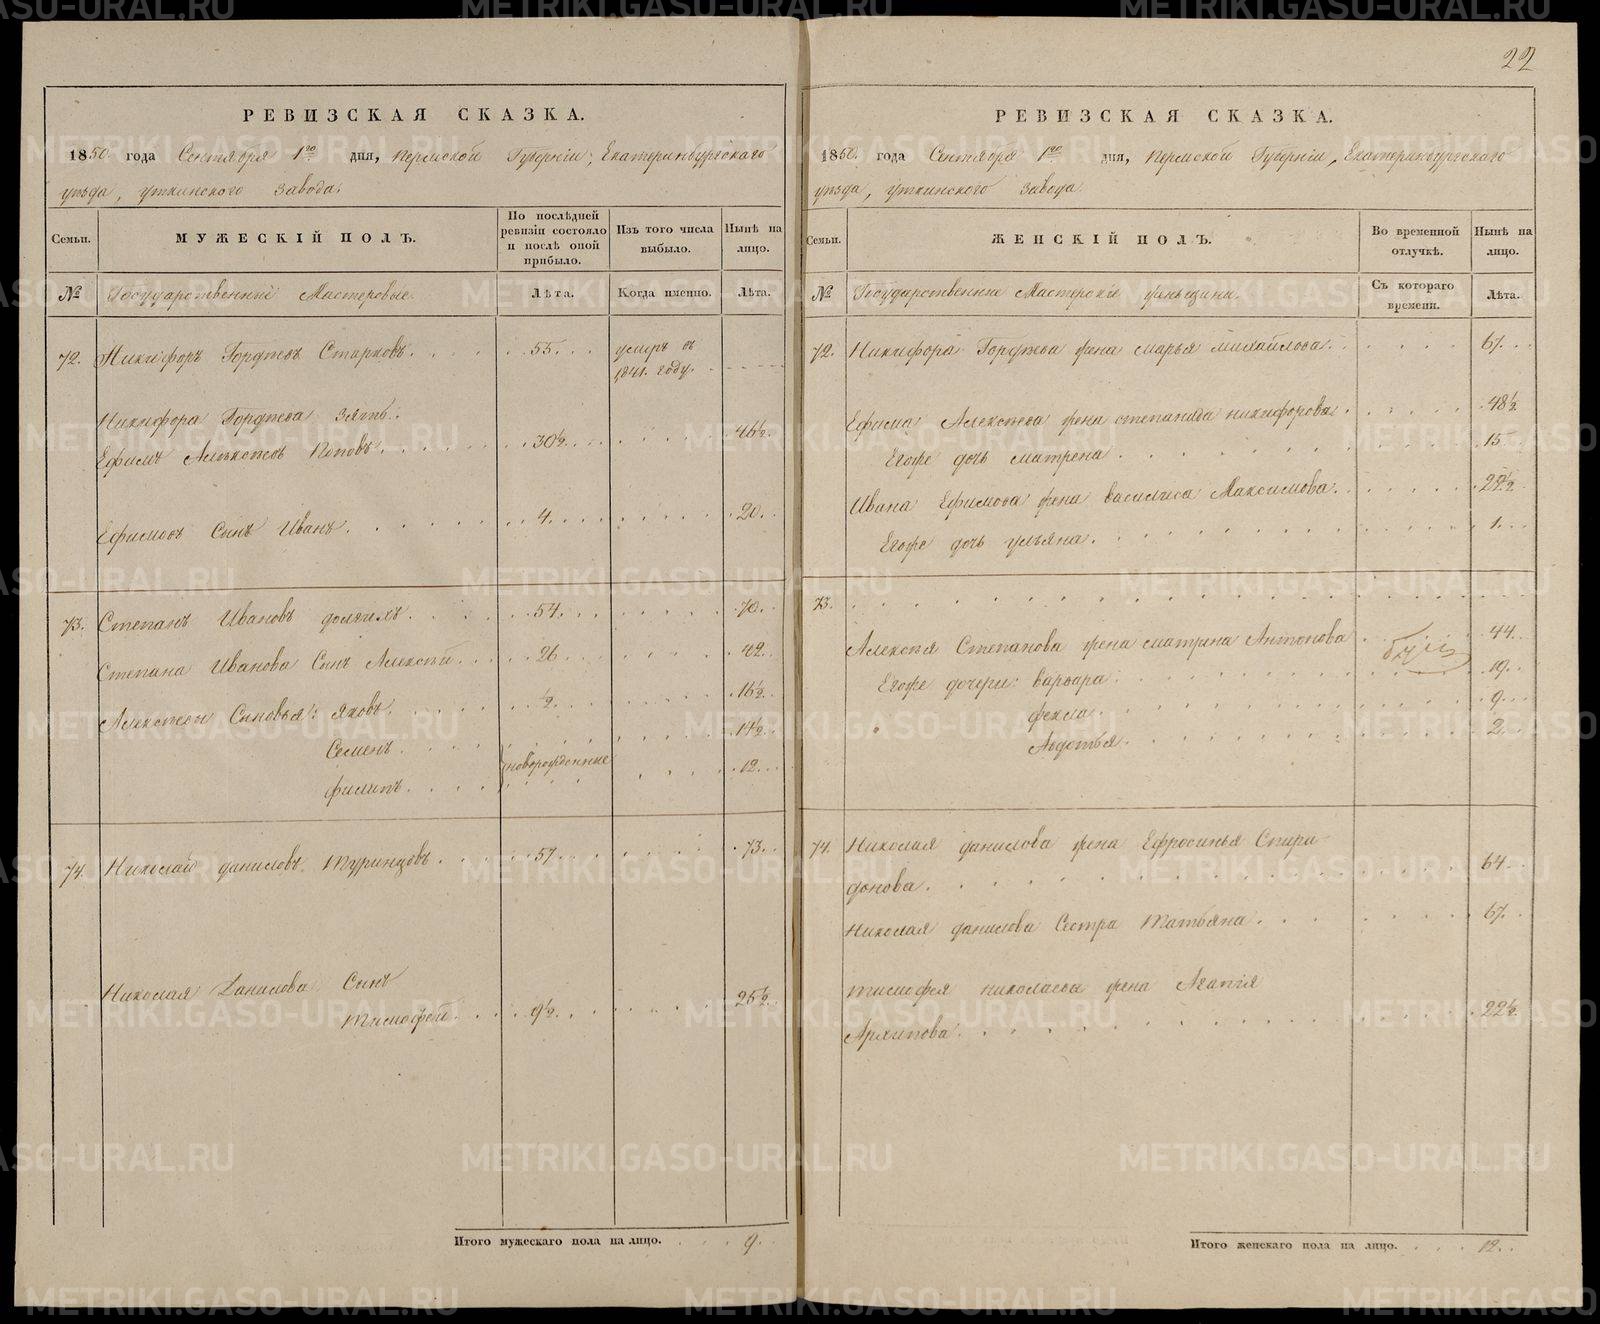 22
РЕВИЗСКАЯ СКАЗКА.
1850 года Сентября 1го дня, Пермской Губерніи, Екатеринбургскаго
уѣзда, Уткинского завода.
Семьи.
МУЖЕСКІЙ ПОЛЪ.
По послѣдней ревизіи состояло и послѣ оной прибыло.
Изъ того числа выбыло.
Нынѣ на лицо.
№ Государственніе Мастеровые. Лѣта. Когда именно. Лѣта.
72. Никифоръ Гордѣевъ Старковъ. 55. умеръ въ
1841. году.
Никифора Гордѣева зять.
Ефимъ Алексѣевъ Поповъ. 30½. 46½.
Ефимовъ Сынъ Иванъ. 4. 20.
73. Степанъ Ивановъ 54. 70.
Степана Иванова Сынъ Алексѣй. 26 42.
Алексѣевы Сыновья: Яковъ. ½. 16½.
Семенъ. 14½.
новорожденные
Филипъ. 12.
74. Николай Даниловъ Туринцовъ. 57. 73.
Николая Данилова Сынъ
Тимофей. 9½. 25½.
Итого мужескаго пола на лицо. 9.
РЕВИЗСКАЯ СКАЗКА.
1850. года Сентября 1го дня, Пермской Губерніи, Екатеринбургскаго
уѣзда, Уткинского завода.
Семьи.
ЖЕНСКІЙ ПОЛЪ.
Во временной отлучкѣ.
Нынѣ на лицо.
№ Государственніе Мастерскіе женьщини. Съ котораго времени. Лѣта.
72. Никифора Гордѣева жена Марья Михайлова. 67.
Ефима Алексѣева жена Степанида Никифорова. 48½.
Егоже дочь Матрена. 15.
Ивана Ефимова жена Василиса Максимова. 22½.
Егоже дочь Ульяна. 1.
73.
Алексѣя Степанова жена Матрина Антонова 44.
Егоже дочери: Варвара. 19.
Фекла. 9.
Авдотья. 2.
74. Николая Данилова жена Ефросинья Спири
донова. 64.
Николая Данилова Сестра Татьяна. 67.
Тимофея Николаева жена Агапія
Архипова. 22½.
Итого женскаго пола на лицо. 12.
METRIKI.GASO-URAL.RU